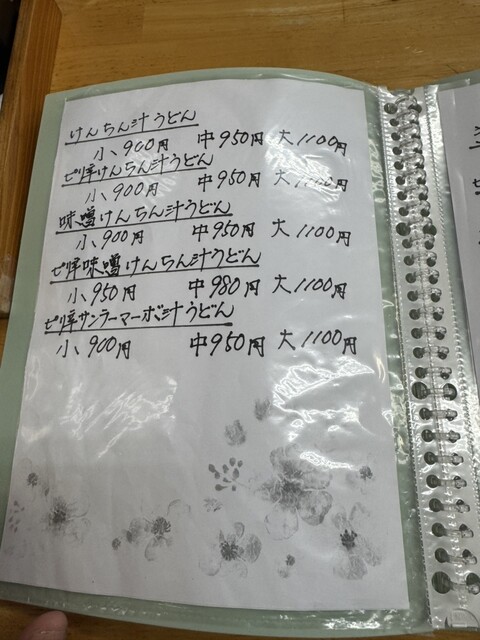 けんちん汁うどん
小 900円 中950円 大1100円
ピリ辛けんちん汁うどん
小 900円 中950円 大1100円
味噌けんちん汁うどん
小 900円 中950円 大1100円
ピリ辛味噌けんちん汁うどん
小 950円 中980円 大1100円
ピリ辛サンラーマーボ汁うどん
小 900円 中950円 大1100円